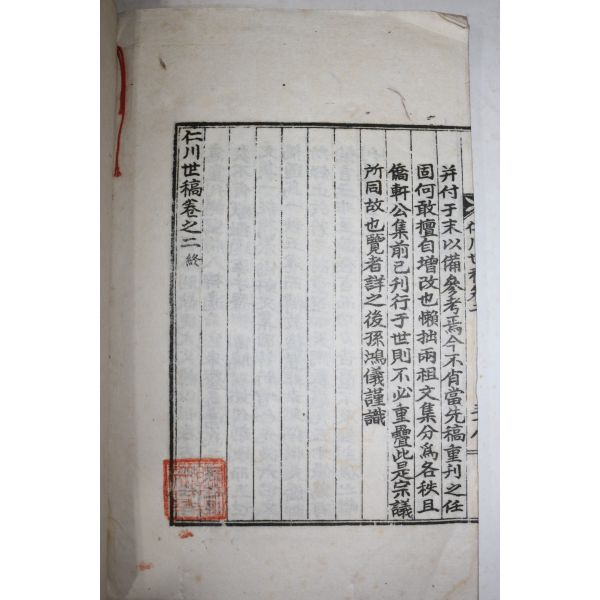 并付于末以備參考焉今不肖當先稿重刊之任
固何敢擅自增改也懶拙兩祖文集分爲各秩且
僑軒公集前已刊行于世則不必重疊此是宗議
所同故也覽者詳之後孫鴻儀謹識
仁川世稿卷之二 終